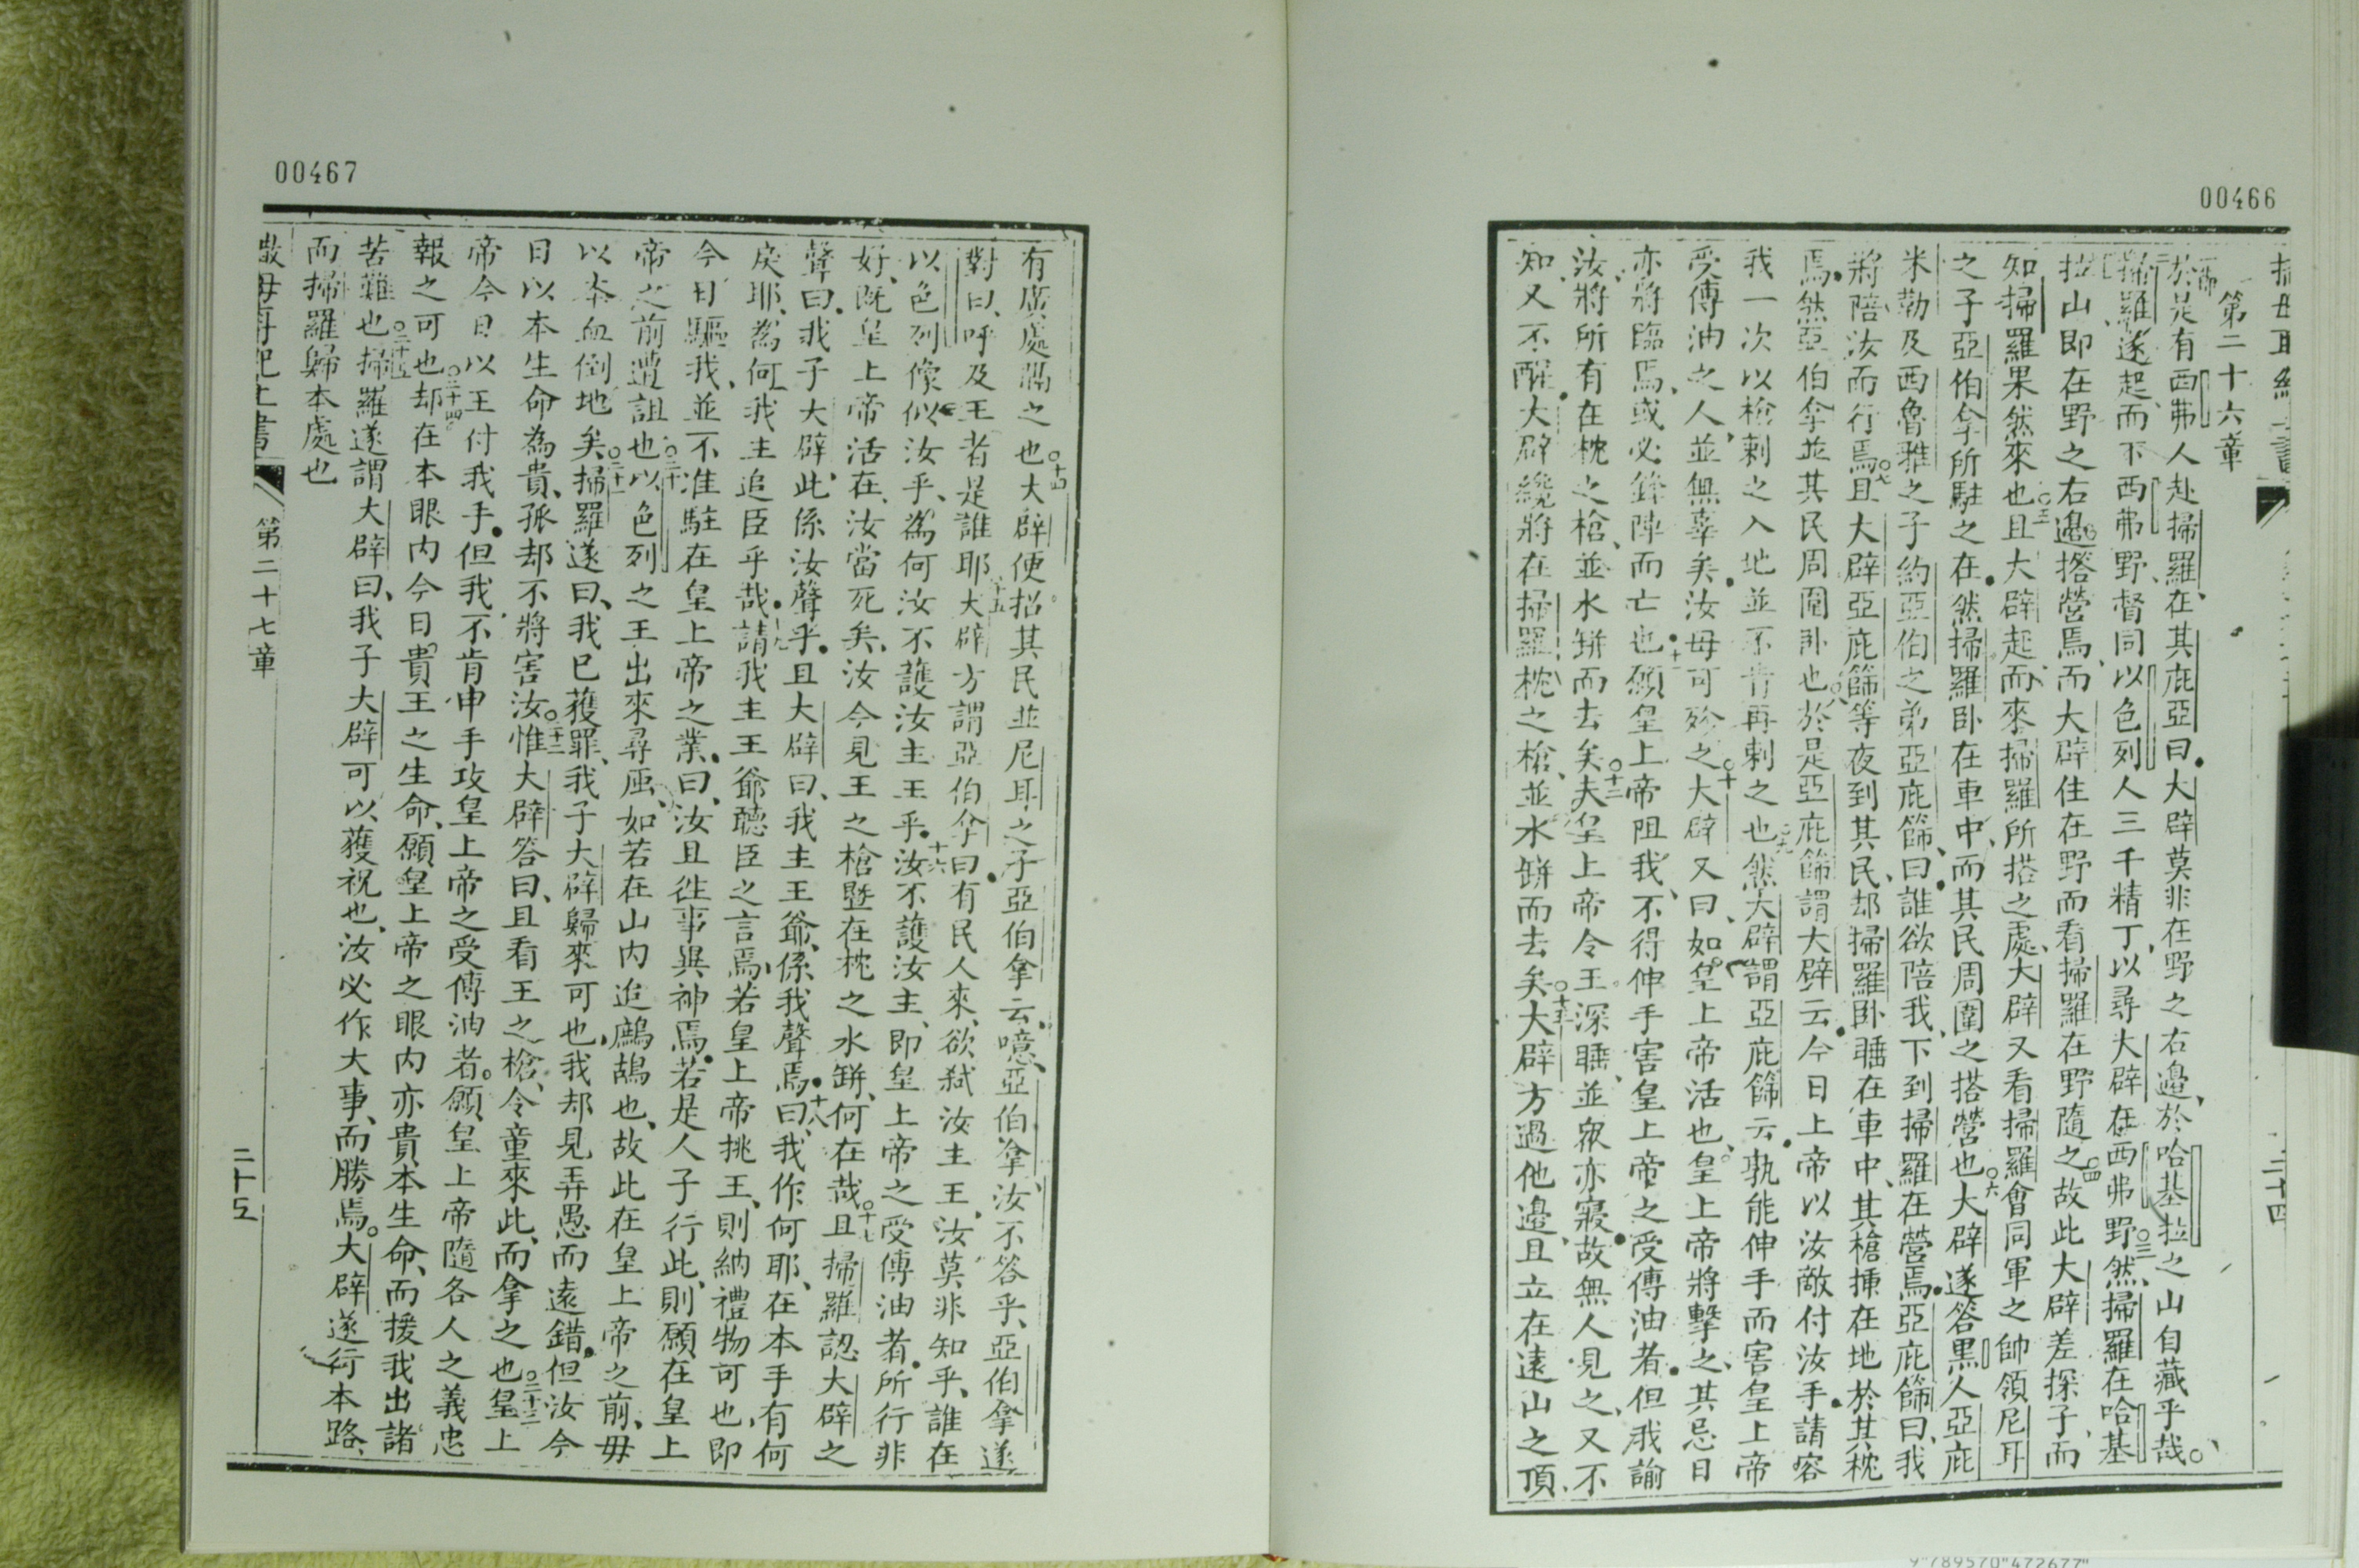 00466
第二十六章
於是有西弗人赴掃羅在其庇亞曰大辟莫非在野之右邊於哈基拉之山自藏乎哉
掃羅遂起而下西弗野督同以色列人三千精丁以尋大辟在西弗野○三然掃羅在哈基
拉山即在野之右邊搭營焉而大辟住在野而看掃羅在野隨之○四故此大辟差探子而
知掃羅果然來也○五且大辟起而來掃羅所搭之處大辟又看掃羅會同軍之帥領尼耳
之子亞伯拿所駐之在然掃羅臥在車中而其民周圍之搭營也○六大辟遂答黑人亞庇
米勒及西魯雅之子約亞伯之弟亞庇篩曰誰欲陪我下到掃羅在營焉亞庇篩曰我
將陪汝而行焉○七且大辟亞庇篩等夜到其民却掃羅臥睡在車中其槍揷在地於其枕
焉然亞伯拿並其民周圍卧也○八於是亞庇篩謂大辟云今日上帝以汝敵付汝手請容
我一次以槍剌之入地並不肯再剌之也○九然大辟謂亞庇篩云孰能伸手而害皇上帝
受傅油之人並無辜矣汝毋可殄之○十大辟又曰如皇上帝活也皇上帝將擊之其忌日
亦將臨焉或必鋒陣而亡也○十一願皇上帝阻我不得伸手害皇上帝之受傅油者但我諭
汝將所有在枕之槍並水缾而去矣○十二夫皇上帝令王深睡並衆亦寢故無人見之又不
知又不醒大辟纔將在掃羅枕之槍並水缾而去矣○十三大辟方過他邊且立在遠山之頂
二十四
00467
有廣處隔之也○十四大辟便招其民並尼耳之子亞伯拿云噫亞伯拿汝不答乎亞伯拿遂
對曰呼及王者是誰耶○十五大辟方謂亞伯拿曰有民人來欲弑汝主王汝莫非知乎誰在
以色列像似汝乎為何汝不護汝主王乎○十六汝不護汝主即皇上帝之受傅油者所行非
好既皇上帝活在汝當死矣汝今見王之槍暨在枕之水缾何在哉○十七且掃羅認大辟之
聲曰我子大辟此係汝聲乎且大辟曰我主王爺係我聲焉○十八曰我作何耶在本手有何
戾耶為何我主追臣乎哉○十九請我主王爺聽臣之言焉若皇上帝挑王則納禮物可也即
今日驅我並不准駐在皇上帝之業曰汝且徃事異神焉若是人子行此則願在皇上
帝之前遭詛也○二十以色列之王出來尋虱如若在山內追鷓鴣也故此在皇上帝之前毋
以本血倒地矣○二十一掃羅遂曰我已獲罪我子大辟歸來可也我却見弄愚而遠錯但汝今
日以本生命為貴孤却不將害汝○二十二惟大辟答曰且看王之槍令童來此而拿之也○二十三皇上
帝今日以王付我手但我不肯申手攻皇上帝之受傅油者願皇上帝隨各人之義忠
報之可也○二十四却在本眼內今日貴王之生命願皇上帝之眼內亦貴本生命而援我出諸
苦難也○二十五掃羅遂謂大辟曰我子大辟可以獲祝也汝必作大事而勝焉大辟遂行本路
而掃羅歸本處也
第二十七章
二十五
9"789570"472677"